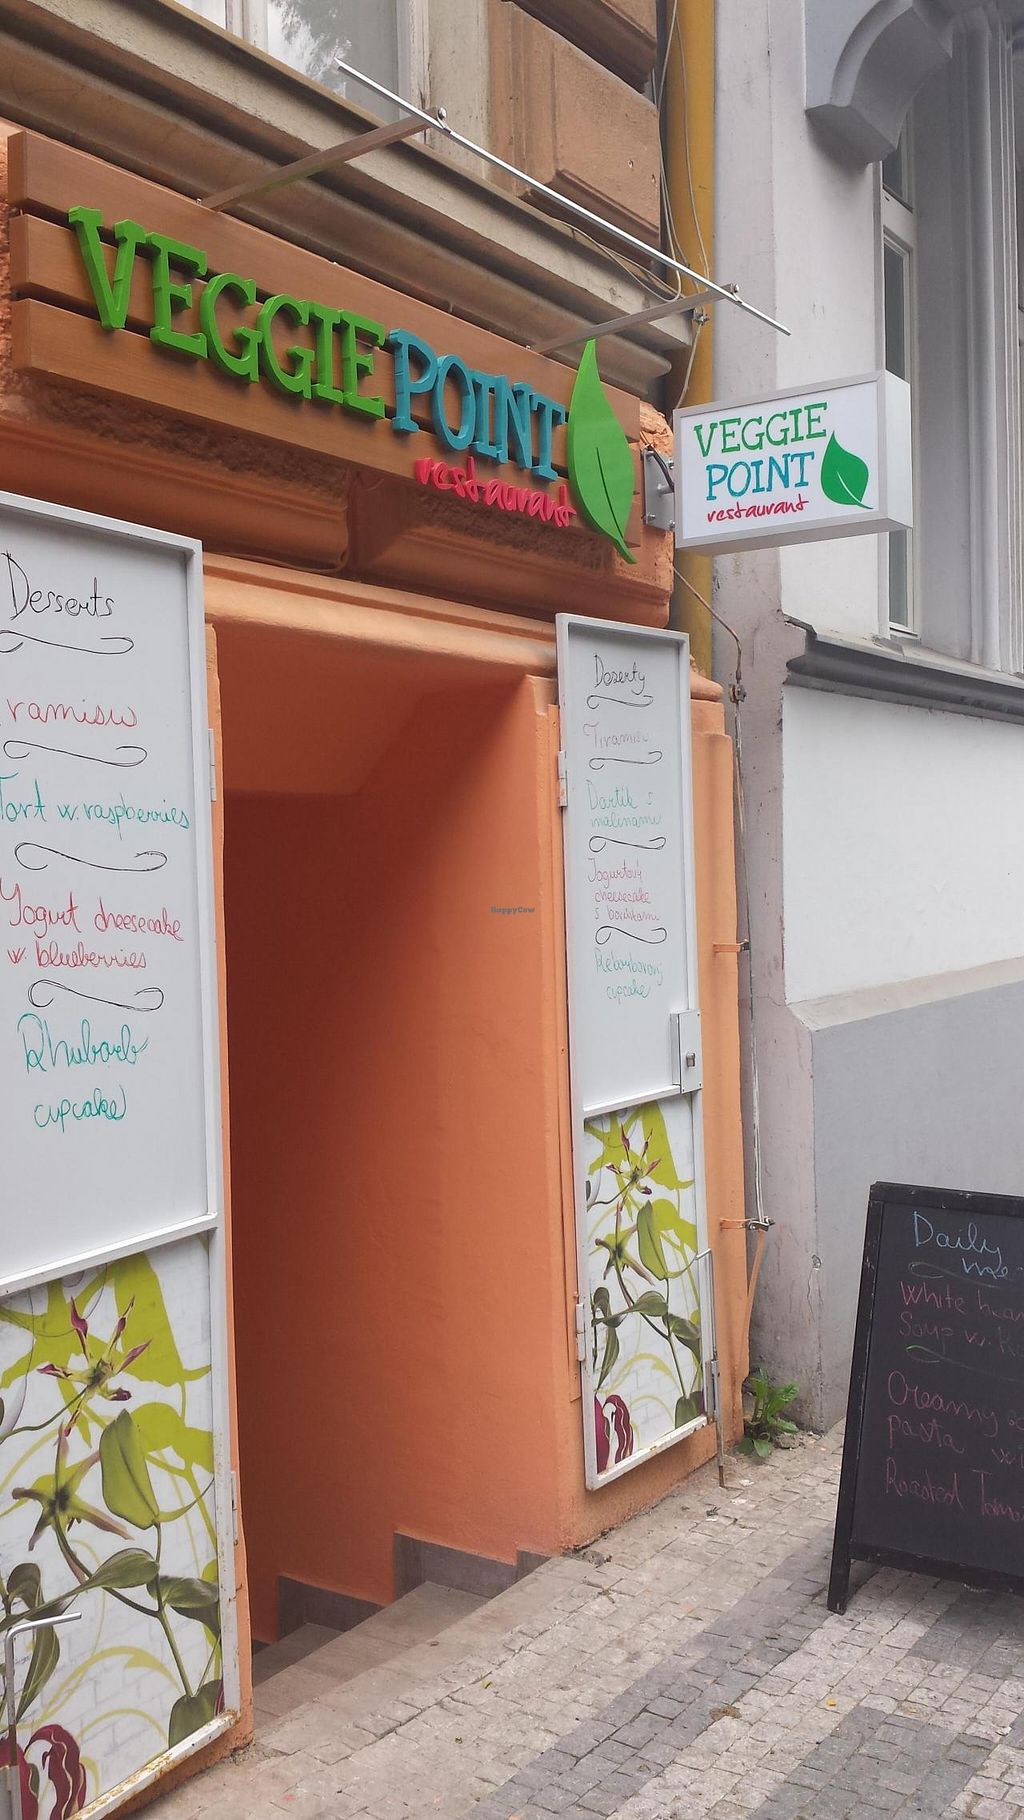 VEGGIE POINT
restaurant
VEGGIE
POINT
restaurant
Desserts
Tort w. raspberries
Yogurt cheesecake
w. blueberries
Rhubarb
cupcake
Dezerty
Tiramisu
Dortík s
malinami
Jogurtový
cheesecake
s borůvkami
Rebarborový
cupcake
HappyCow
Daily
White
Soup w.
Creamy
pasta
Roasted